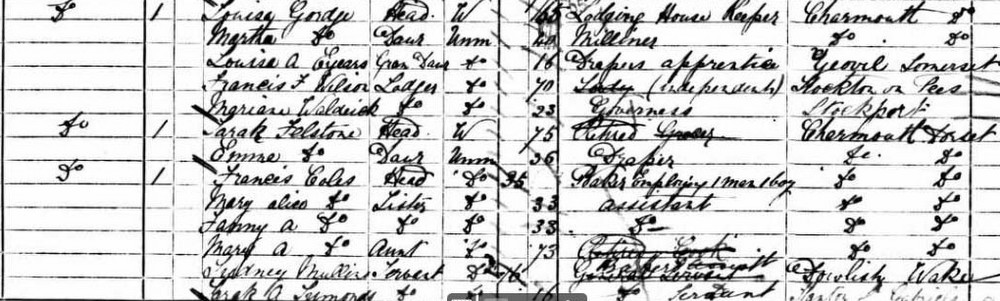 Do 1 Louisa Gordge Head W 65 Lodging House Keeper Charmouth Do
Martha Do Daur Unm 40 Milliner Do Do
Louisa A Eyears Gran Daur Do 16 Drapers apprentice Yeovil Somerset
Francis F Wilson Lodger Do 70 Lady (independent) Stockton on Tees
Mariane Do Do 23 Governess Stockport
Do 1 Sarah Felstone Head W 75 Retired Grocer Charmouth Dorset
Emma Do Daur Unm 36 Draper Do Do
Do 1 Francis Coles Head Do 35 Baker Employing 1 man 1 boy Do Do
Mary alice Do Sister Do 33 assistant Do Do
Fanny A Do Do Do 33 Do Do Do
Mary A Do Aunt Do 73 Retired Cook Do Do
Sydney Mullins Servant Do 16 General Servant Dowlish Wake
Sarah A Do Do 16 Do Servant